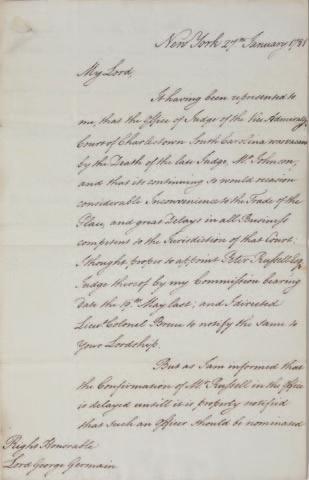 New York 27th January 1781
My Lord,
It having been represented to
me, that the Office of Judge of the Vice Admiralty
Court of Charlestown South Carolina was vacant
by the Death of the late Judge, Mr. Johnson,
and that its continuing so would occasion
considerable Inconvenience to the Trade of the
Place, and great delays in all Business
competent to the Jurisdiction of that Court;
I thought proper to appoint Peter Russell Esq
Judge thereof by my Commission bearing
Date the 19th May last; and I directed
Lieut. Colonel Bruce to notify the same to
Your Lordship.
But as I am informed that
the Confirmation of Mr. Russell in the Office
is delayed untill it is properly notified
that such an Officer should be nominated
Right Honorable
Lord George Germain